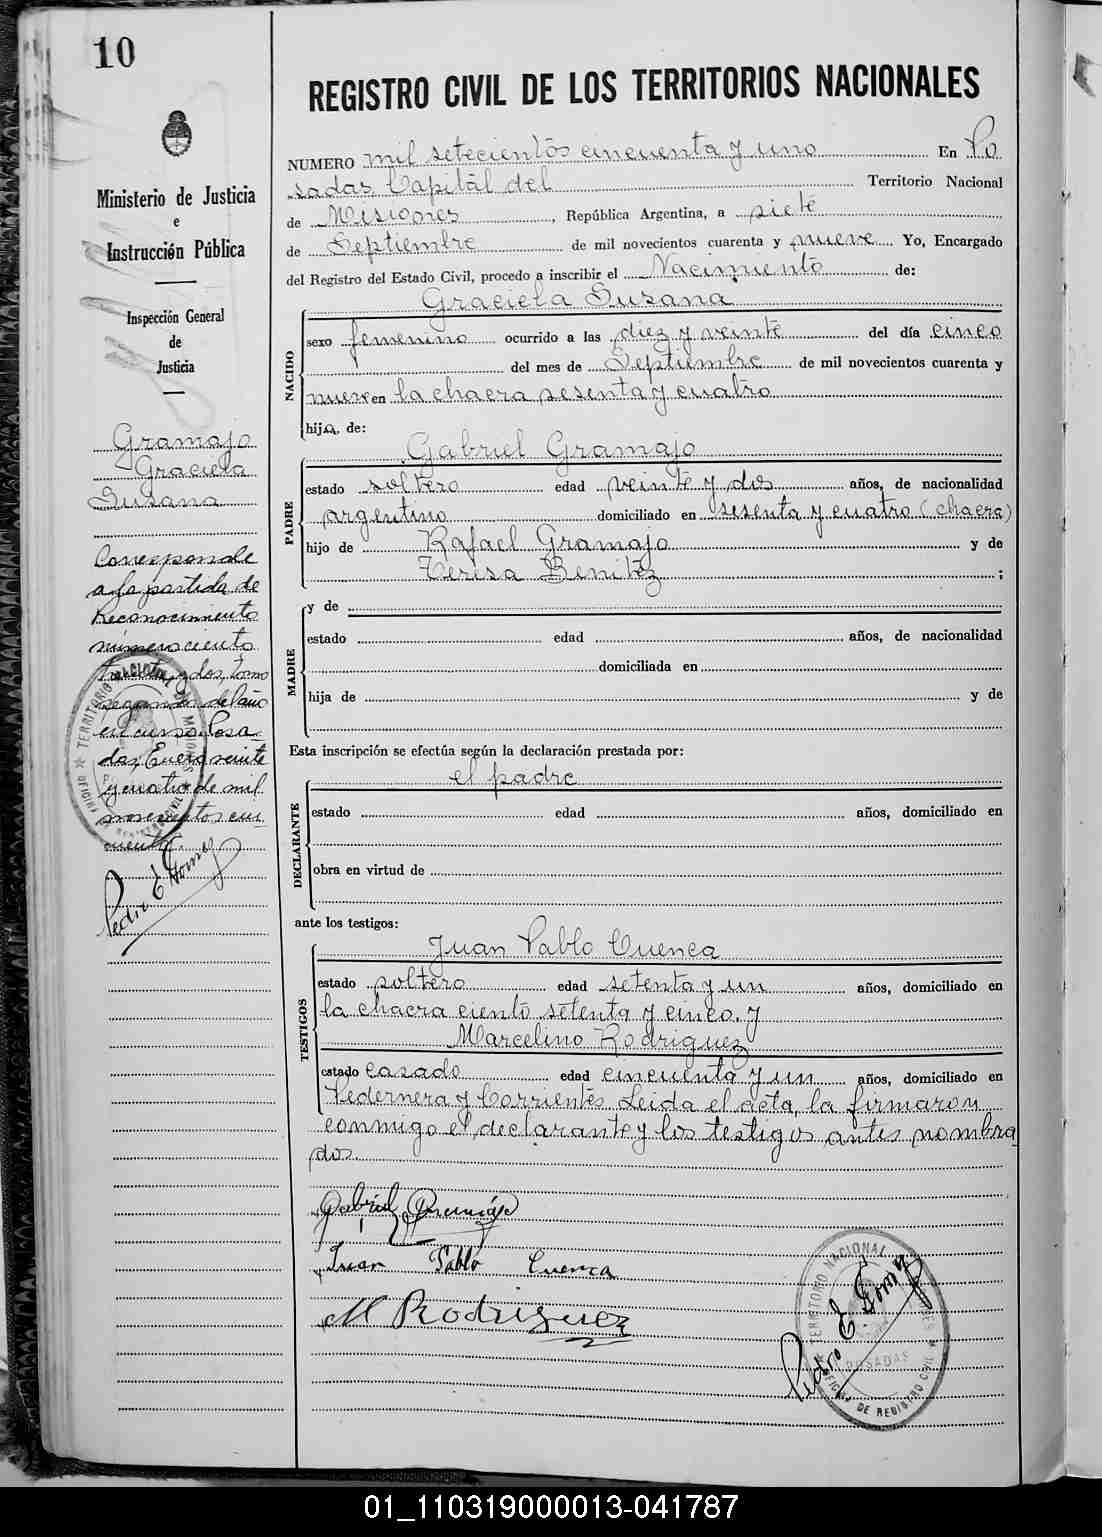 10
REGISTRO CIVIL DE LOS TERRITORIOS NACIONALES
Ministerio de Justicia
e
Instrucción Pública
Inspección General
de
Justicia
Gramajo
Graciela
Susana
Corresponde
a la partida de
Reconocimiento
número ciento
treinta y dos, tomo
segundo del año
en curso. Posa
das, Enero veinte
y cuatro de mil
novecientos cin-
cuenta.
Pedro E Gomez
NUMERO mil setecientos cincuenta y uno En Po
sadas Capital del Territorio Nacional
de Misiones, República Argentina, a siete
de Septiembre de mil novecientos cuarenta y nueve Yo, Encargado
del Registro del Estado Civil, procedo a inscribir el Nacimiento de:
Graciela Susana
NACIDO
sexo femenino ocurrido a las diez y veinte del día cinco
del mes de Septiembre de mil novecientos cuarenta y
nueve en la chacra sesenta y cuatro
hija, de:
Gabriel Gramajo
PADRE
estado soltero edad veinte y dos años, de nacionalidad
argentino domiciliado en sesenta y cuatro (chacra)
hijo de Rafael Gramajo y de
Teresa Benitez ;
MADRE
y de
estado edad años, de nacionalidad
domiciliada en
hija de y de
Esta inscripción se efectúa según la declaración prestada por:
el padre
DECLARANTE
estado edad años, domiciliado en
obra en virtud de
ante los testigos:
Juan Pablo Cuenca
TESTIGOS
estado soltero edad setenta y un años, domiciliado en
la chacra ciento setenta y cinco. y
Marcelino Rodriguez
estado casado edad cincuenta y un años, domiciliado en
Pedernera y Corrientes. Leida el acta, la firmaron
conmigo el declarante y los testigos antes nombra
dos.
Gabriel Gramajo
Juan Pablo Cuenca
M Rodriguez
Pedro E Gomez
TERRITORIO NACIONAL DE MISIONES
POSADAS
OFICINA DE REGISTRO CIVIL
01_110319000013-041787